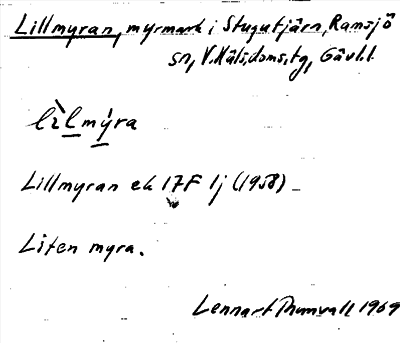 Lillmyran, myrmark i Stugutjärn, Ramsjö
sn, V. Häls. doms. tg, Gävl.l.
lìlmýra
Lillmyran ek 17F 1j (1958)
Liten myra.
Lennart Thunvall 1969